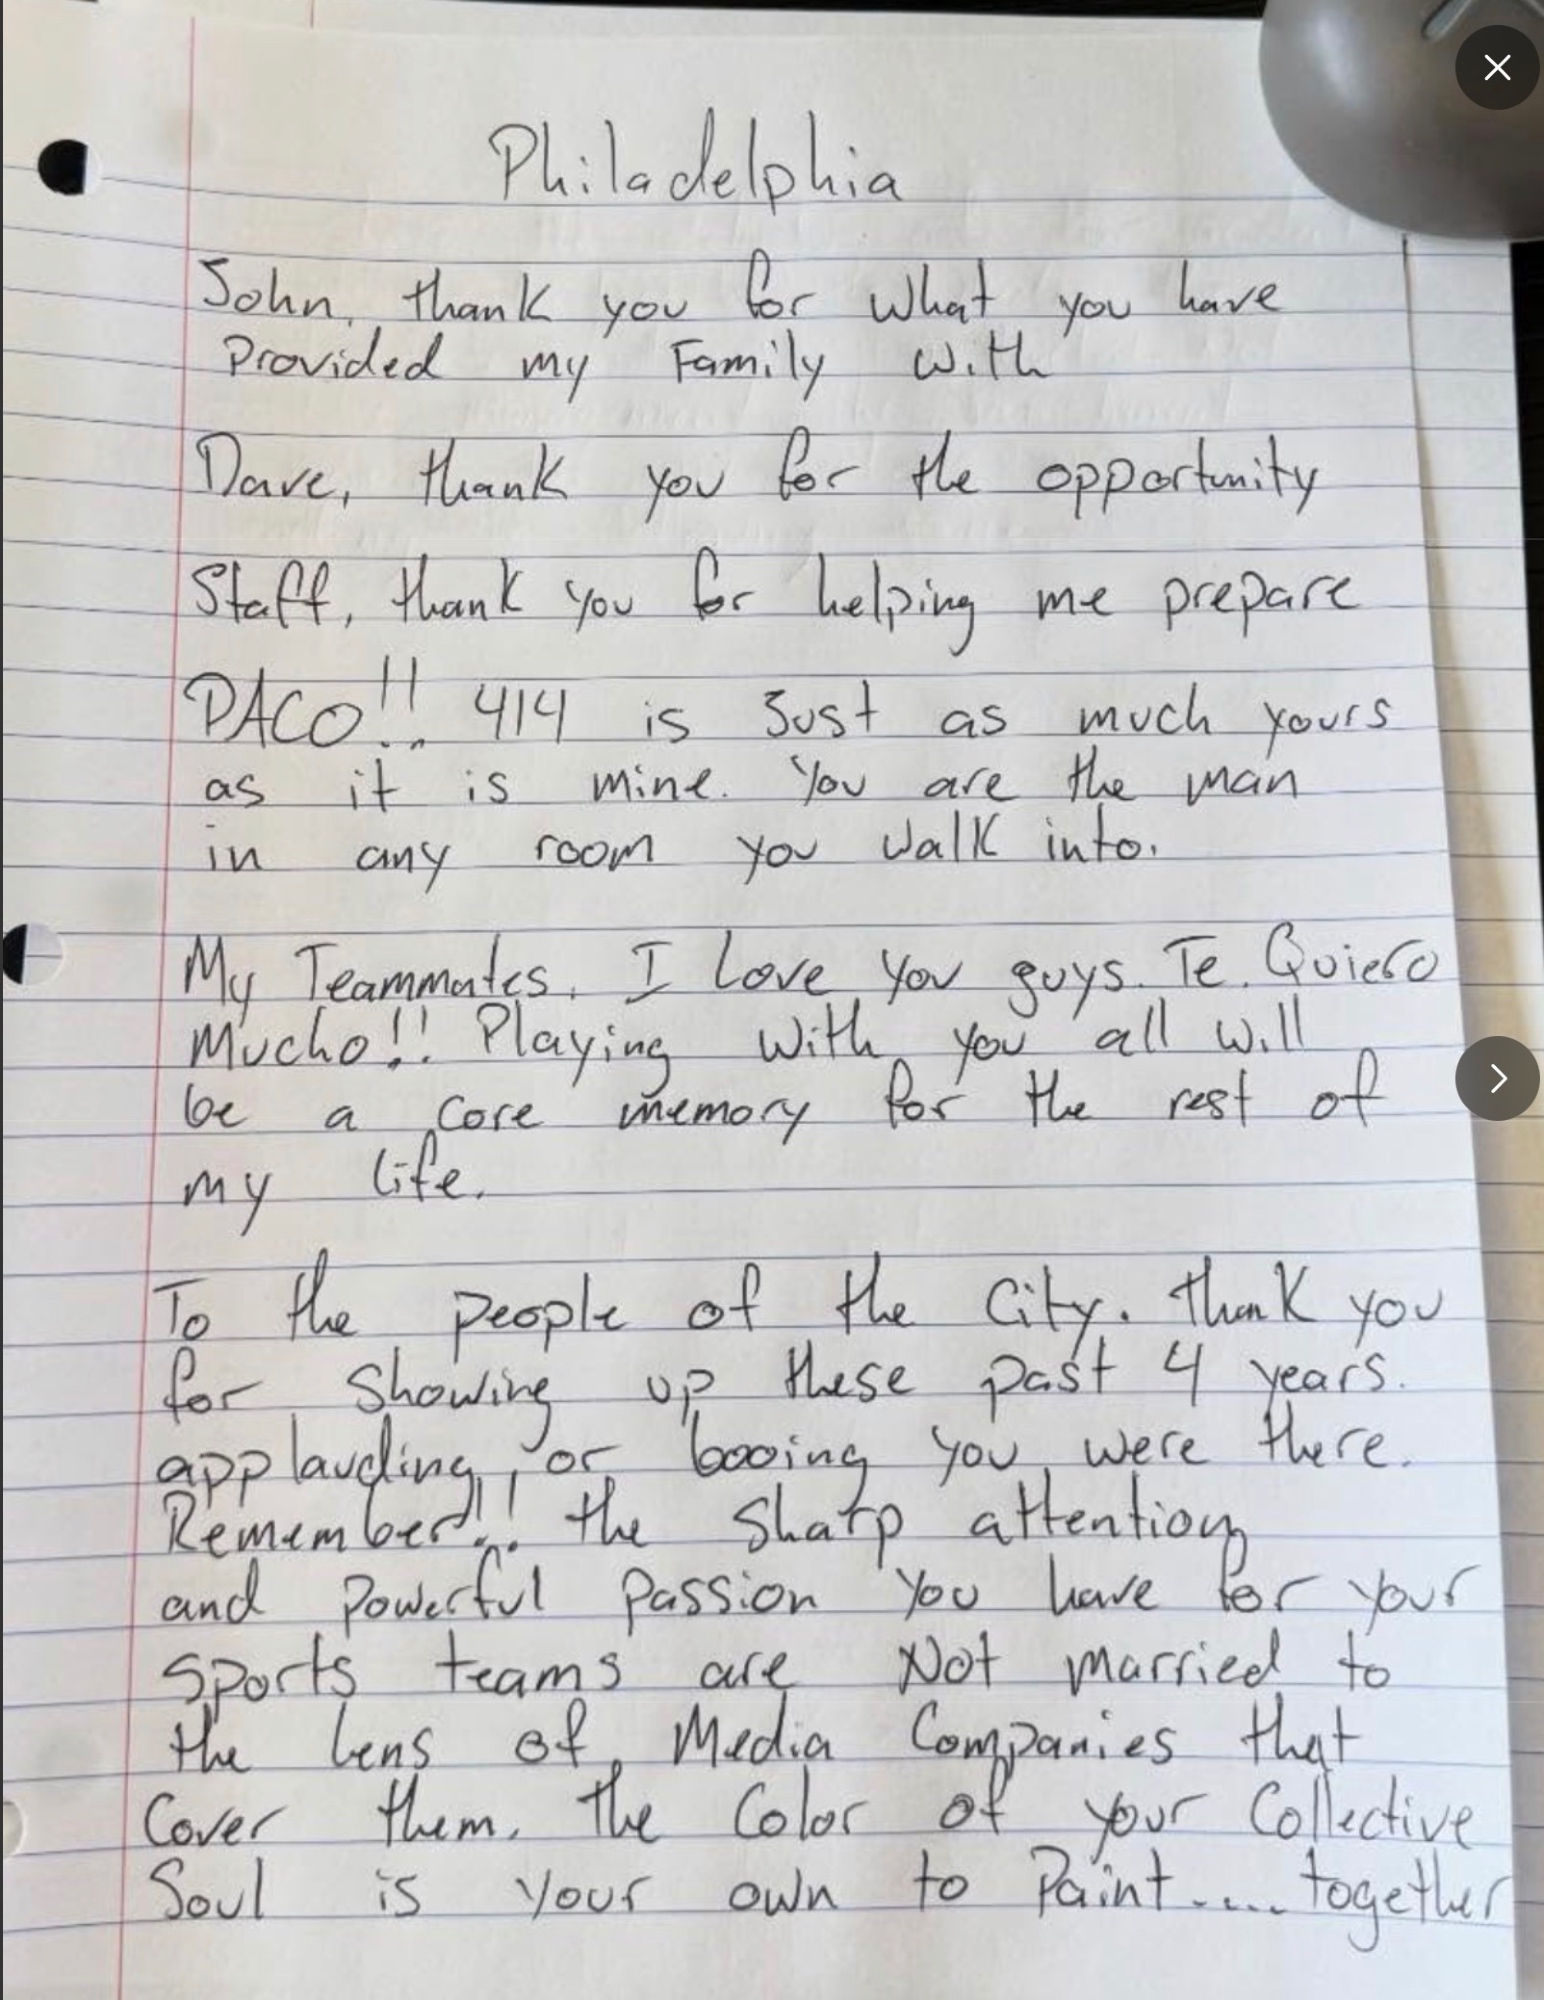 Philadelphia
John, thank you for what you have
Provided my Family with
Dave, thank you for the opportunity
Staff, thank you for helping me prepare
PACO!!! 414 is Just as much yours
as it is mine. You are the man
in any room you walk into.
My Teammates, I Love You guys. Te Quiero
Mucho!! Playing With you all will
be a core memory for the rest of
my life.
To the people of the City. thank you
for showing up these past 4 years.
applauding, or booing you were there.
Remember!!! the sharp attention
and powerful passion you have for your
sports teams are Not married to
the lens of Media Companies that
Cover them. the Color of your Collective
Soul is your own to Paint.... together